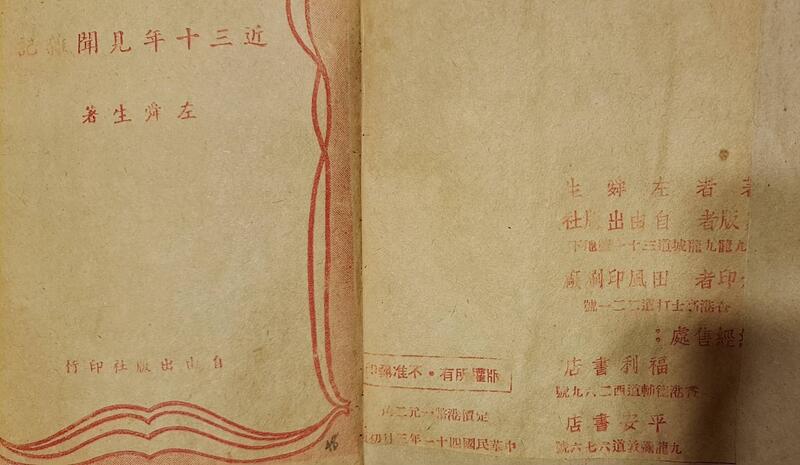 近三十年見聞雜記
左舜生著
自由出版社印行
著者 左舜生
版者 自由出版社
九龍九龍城道三十一號地下
印者 田風印刷廠
香港高士打道二二一號
經售處：
福利書店
香港德輔道西二六九號
平安書店
九龍彌敦道六七六號
版權所有・不准翻印
定價港幣一元二角
中華民國四十一年三月初